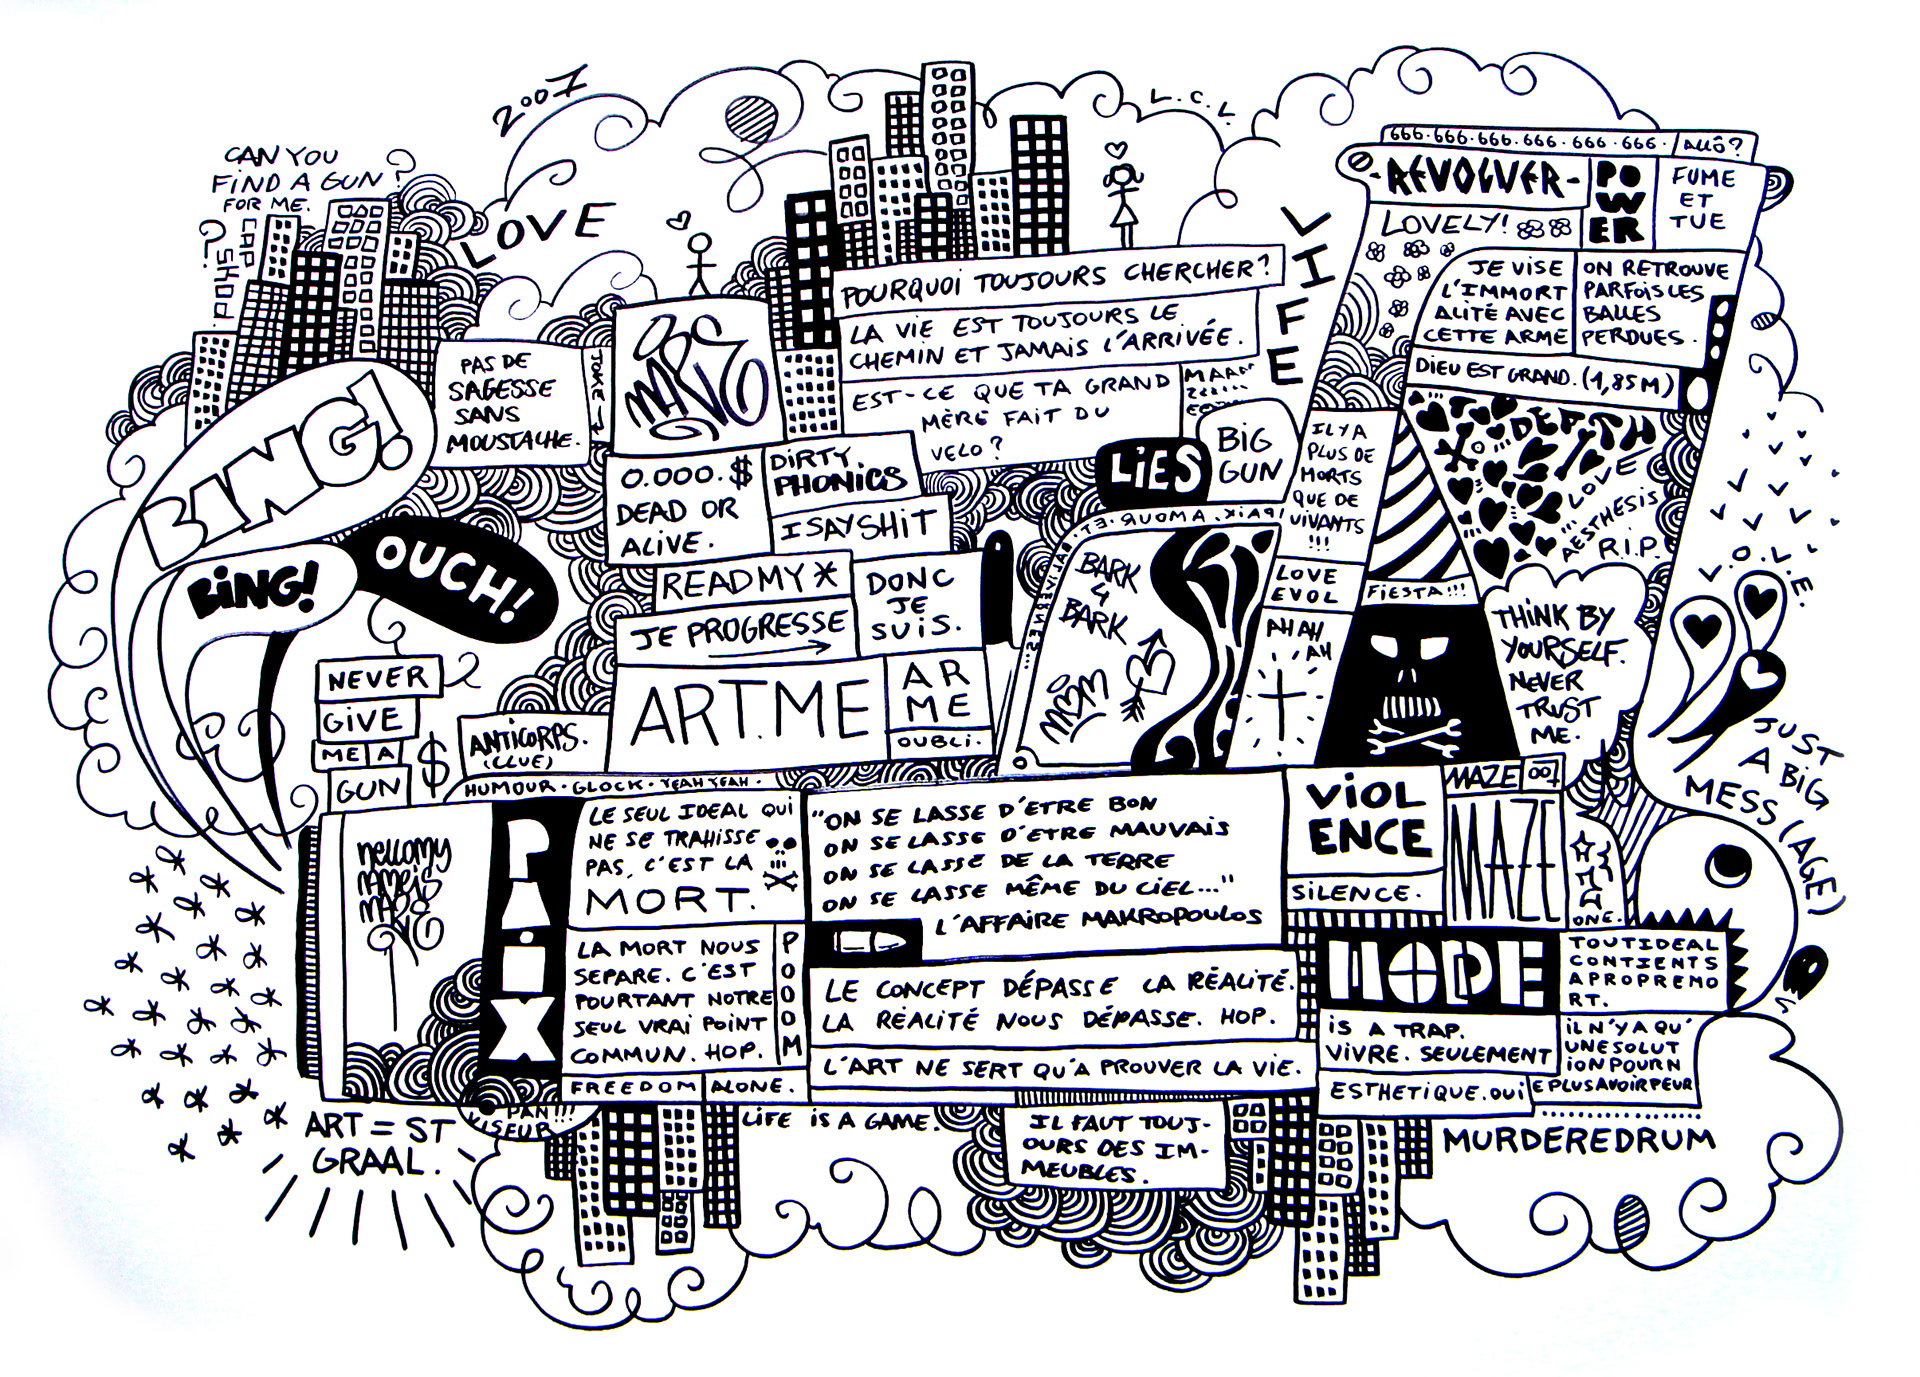 2007
L.C.L.
CAN YOU
FIND A GUN?
FOR ME.
LOVE
VIFE
666.666.666.666.666.666.
ALLÔ?
-REVOLVER-
POWER
FUME
ET
TUE
LOVELY!
JE VISE
L'IMMORT
ALITÉ AVEC
CETTE ARME
ON RETROUVE
PARFOIS LES
BALLES
PERDUES.
DIEU EST GRAND. (1,85M)
POURQUOI TOUJOURS CHERCHER?
LA VIE EST TOUJOURS LE
CHEMIN ET JAMAIS L'ARRIVÉE.
EST-CE QUE TA GRAND
MÈRE FAIT DU
VELO?
PAS DE
SAGESSE
SANS
MOUSTACHE.
JOKE
BANG!
BING!
OUCH!
0.000.$
DEAD OR
ALIVE.
DIRTY
PHONICS
I SAY SHIT
LIES
BIG
GUN
IL Y A
PLUS DE
MORTS
QUE DE
VIVANTS
!!!
DEPTH
LOVE
AESTHESIS
R.I.P.
READMY*
JE PROGRESSE
DONC
JE
SUIS.
BARK
4
BARK
LOVE
EVOL
AH AH
AH
FIESTA!!!
THINK BY
YOURSELF.
NEVER
TRUST
ME.
L.O.L.E.
NEVER
GIVE
ME A
GUN
$
ANTICORPS.
(CLUE)
ART.ME
AR
ME
OUBLI.
JUST
A BIG
MESS (AGE)
HUMOUR.GLOCK.YEAH YEAH.
PAIX
LE SEUL IDEAL QUI
NE SE TRAHISSE
PAS, C'EST LA
MORT.
"ON SE LASSE D'ETRE BON
ON SE LASSE D'ETRE MAUVAIS
ON SE LASSE DE LA TERRE
ON SE LASSE MÊME DU CIEL..."
L'AFFAIRE MAKROPOULOS
VIOL
ENCE
SILENCE.
MAZE 007
MAZE
ONE.
LA MORT NOUS
SEPARE. C'EST
POURTANT NOTRE
SEUL VRAI POINT
COMMUN. HOP.
POOOM
FREEDOM ALONE.
LE CONCEPT DÉPASSE LA RÉALITÉ.
LA RÉALITÉ NOUS DÉPASSE. HOP.
L'ART NE SERT QU'A PROUVER LA VIE.
HOPE
IS A TRAP.
VIVRE. SEULEMENT
ESTHETIQUE.OUI
TOUTIDEAL
CONTIENTS
APROPREMO
RT.
IL N'Y A QU'
UNESOLUT
ION POUR N
E PLUS AVOIR PEUR
PAN!!!
VISEUR
ART = ST
GRAAL.
LIFE IS A GAME.
IL FAUT TOUJ-
OURS DES IM-
MEUBLES.
MURDEREDRUM